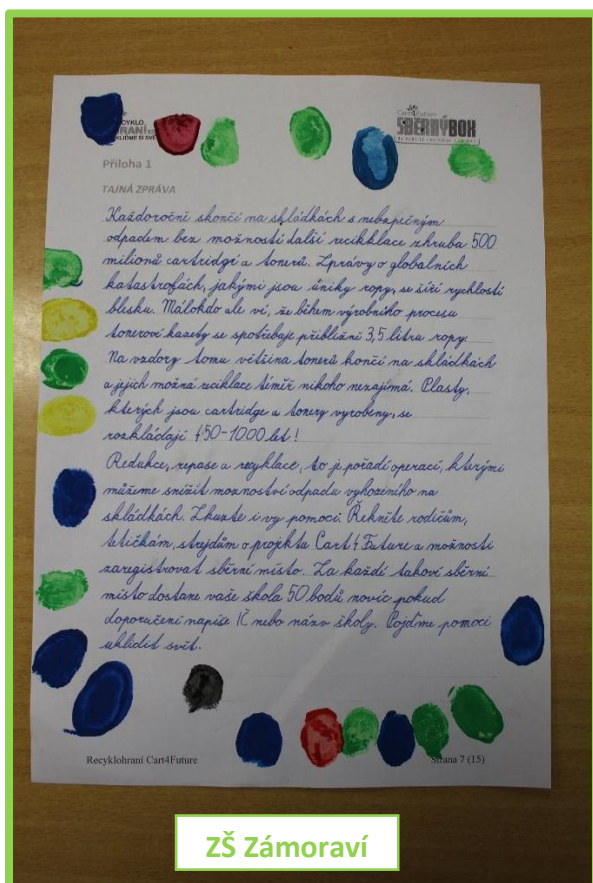 CYKLO
HRANÍ
Cart4Future
SBĚRNÝBOX
Příloha 1
TAJNÁ ZPRÁVA
Každoročně skončí na skládkách s nebezpečným
odpadem bez možnosti další recikklace zhruba 500
milionů cartridgi a tonerů. Zprávy o globalních
katastrofách, jakými jsou úniky ropy, se šíří rychlostí
blesku. Málokdo ale ví, že během výrobního procesu
tonerové kazety se spotřebuje přibližně 3,5 litru ropy.
Na vzdory tomu většina tonerů končí na skládkách
a jejich možná reciklace téměř nikoho nezajímá. Plasty,
kterých jsou cartridge a tonery vyrobeny, se
rozkládají 450-1000 let!
Redukce, repase a recyklace, to je pořadí operací, kterými
můžeme snížit moznoství odpadu vyhozeného na
skládkách. Zkuzte i vy pomoci. Řekněte rodičům,
tetičkám, strejdům o projektu Cart4Future a možnosti
zaregistrovat sběrní místo. Za každí takoví sběrní
místo dostane vaše škola 50 bodů novíc pokud
doporučení napíše IČ nebo názv školy. Pojďme pomoci
uklidit svět.
Recyklohraní Cart4Future Strana 7 (15)
ZŠ Zámoraví